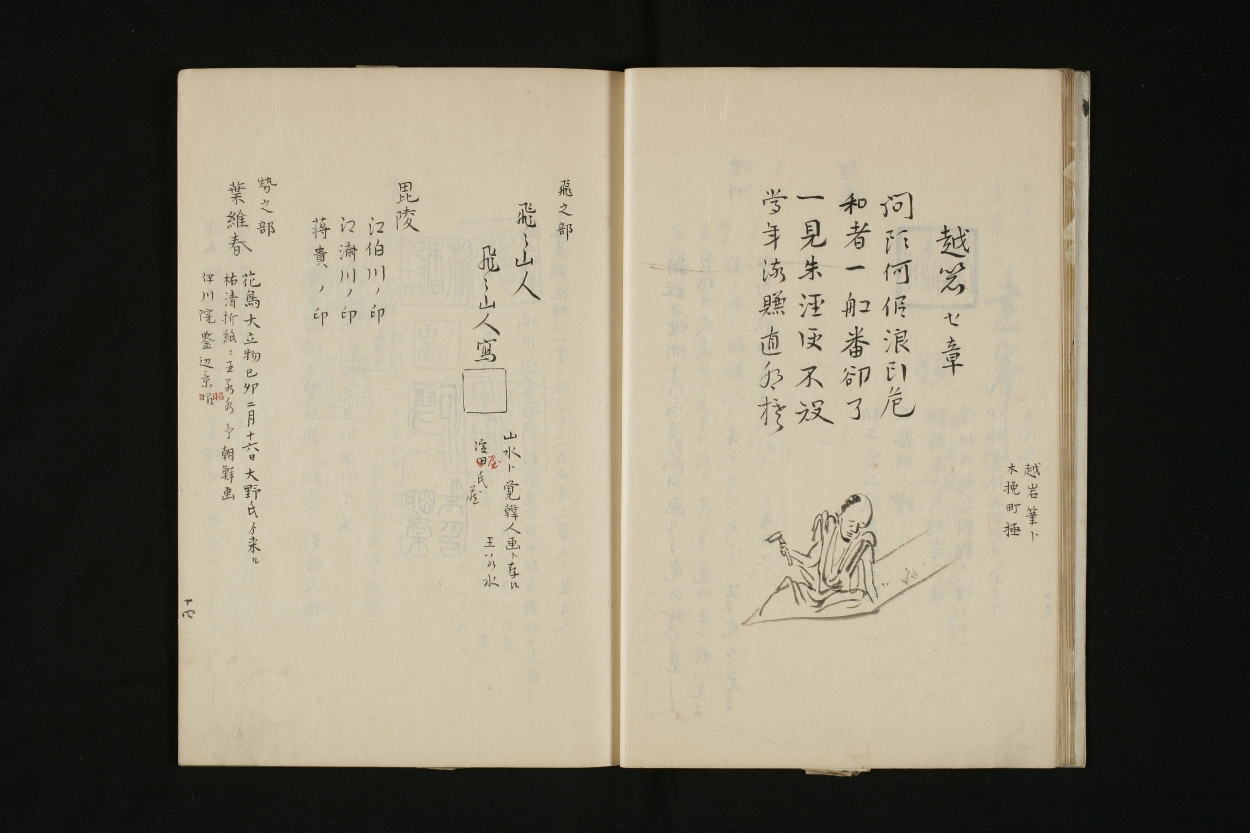 越岩筆ト
木挽町極
越岩 七章
問 何 浪 危
和者一舡番卻了
一見朱涇便不設
当年 賺直
飛之部
飛〻山人
飛〻山人寫
山水ト覚韓人画ト存候
王若水
淀田氏蔵
屋
毘陵
江伯川ノ印
江濤川ノ印
蒋貴ノ印
勢之部
葉維春
花鳥大立物己卯二月十六日大野氏ゟ来ル
祐清折紙ニ王若水予朝鮮画
伊川院鑒辺景昭
昭
十四